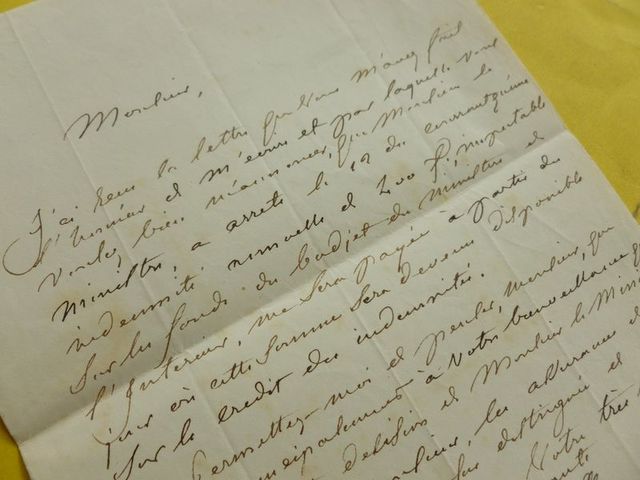 Monsieur,
J'ai reçu la lettre que vous m'avez fait
l'honneur de m'écrire et par laquelle vous
voulez bien m'annoncer, que Monsieur le
Ministre, a arrêté le 19 du courant qu'une
indemnité annuelle de 400 f, imputable
sur les fonds du budget du ministère de
l'Intérieur, me sera payée à partir du
jour où cette somme sera devenue disponible
sur le crédit des indemnités.
Permettez-moi de penser, monsieur, que
principalement à votre bienveillance
décision de Monsieur le Mini
les assurances
distinguée et
Votre très